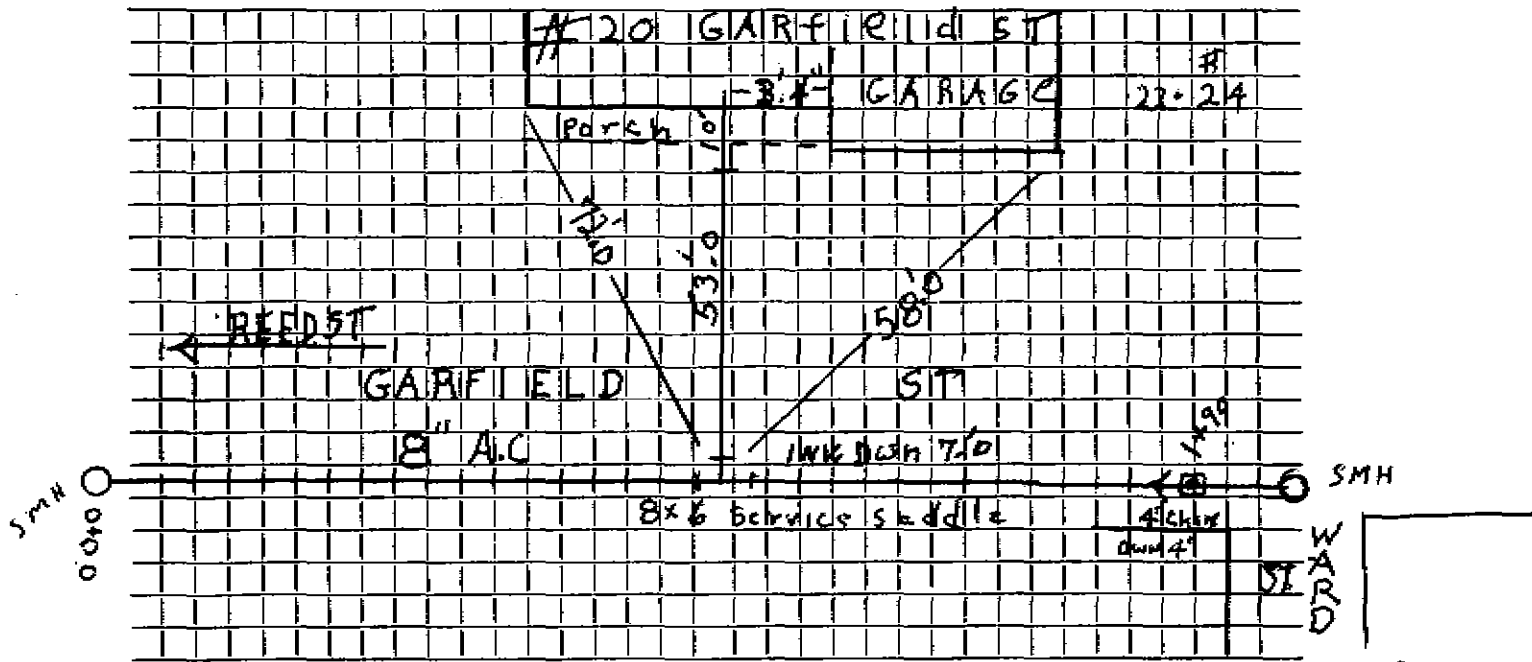 # 20 GARfield ST
-3'.4"-
GARAGE
#
22-24
Porch
1'0
72'.0
53'.0
58'.0
REED ST
GARFIELD ST
8" A.C
INV Down 7'.0
SMH
SMH
0+00
8x6 Service Saddle
Down 4'
WARD
ST